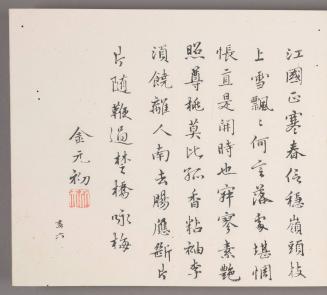 江國正寒春信穩嶺頭枝
上雪飄飄何言落處堪惆
悵直是開時也寂寥素艷
照尊桃莫比孤香粘袖李
須饒離人南去腸應斷片
片隨鞭過楚橋咏梅
金元初